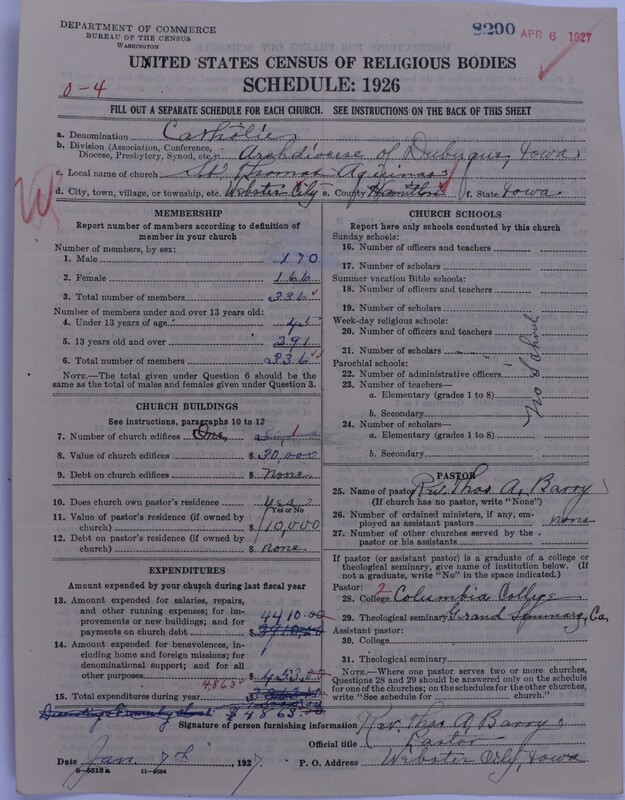 DEPARTMENT OF COMMERCE
BUREAU OF THE CENSUS
WASHINGTON
8200 APR 6 1927
UNITED STATES CENSUS OF RELIGIOUS BODIES
SCHEDULE: 1926
0-4
FILL OUT A SEPARATE SCHEDULE FOR EACH CHURCH. SEE INSTRUCTIONS ON THE BACK OF THIS SHEET
a. Denomination Catholic
b. Division (Association, Conference, Diocese, Presbytery, Synod, etc.) Archdiocese of Dubuque, Iowa
c. Local name of church St. Thomas Aquinas
d. City, town, village, or township, etc. Webster City e. County Hamilton f. State Iowa
MEMBERSHIP
Report number of members according to definition of
member in your church
Number of members, by sex:
1. Male 170
2. Female 166
3. Total number of members 336
Number of members under and over 13 years old:
4. Under 13 years of age 45
5. 13 years old and over 291
6. Total number of members 336
NOTE.—The total given under Question 6 should be
same as the total of males and females given under Question 3.
CHURCH BUILDINGS
See instructions, paragraphs 10 to 12
7. Number of church edifices One 1
8. Value of church edifices $ 30,000
9. Debt on church edifices $ None
10. Does church own pastor's residence yes
Yes or No
11. Value of pastor's residence (if owned by
church) $ 10,000
12. Debt on pastor's residence (if owned by
church) $ none
EXPENDITURES
Amount expended by your church during last fiscal year
13. Amount expended for salaries, repairs,
and other running expenses; for im-
provements or new buildings; and for
payments on church debt $ 4410.00
14. Amount expended for benevolences, in-
cluding home and foreign missions; for
denominational support; and for all
other purposes $ 453.
15. Total expenditures during year 4,863
$ 4863.00
CHURCH SCHOOLS
Report here only schools conducted by this church
Sunday schools:
16. Number of officers and teachers
17. Number of scholars
Summer vacation Bible schools:
18. Number of officers and teachers
19. Number of scholars
Week-day religious schools:
20. Number of officers and teachers
21. Number of scholars
Parochial schools:
22. Number of administrative officers
23. Number of teachers—
a. Elementary (grades 1 to 8)
b. Secondary
24. Number of scholars—
a. Elementary (grades 1 to 8)
b. Secondary
No School
PASTOR
25. Name of pastor Rev. Thos. A. Barry
(If church has no pastor, write "None")
26. Number of ordained ministers, if any, em-
ployed as assistant pastors none
27. Number of other churches served by the
pastor or his assistants
If pastor (or assistant pastor) is a graduate of a college or
theological seminary, give name of institution below. (If
not a graduate, write "No" in the space indicated.)
Pastor:
28. College Columbia College
29. Theological seminary Grand Seminary, Ca.
Assistant pastor:
30. College
31. Theological seminary
NOTE.—Where one pastor serves two or more churches,
Questions 28 and 29 should be answered only on the schedule
for one of the churches; on the schedules for the other churches,
write "See schedule for church."
Signature of person furnishing information Rev. Thos. A. Barry
Official title Pastor
Date Jan. 7th, 1927 P. O. Address Webster City, Iowa
8-5518a 11-9034